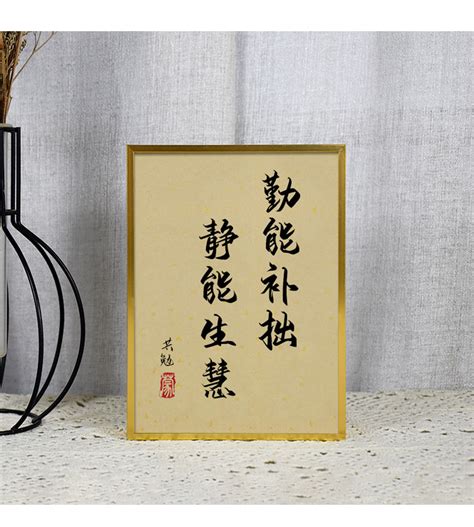 勤能补拙
静能生慧
共勉